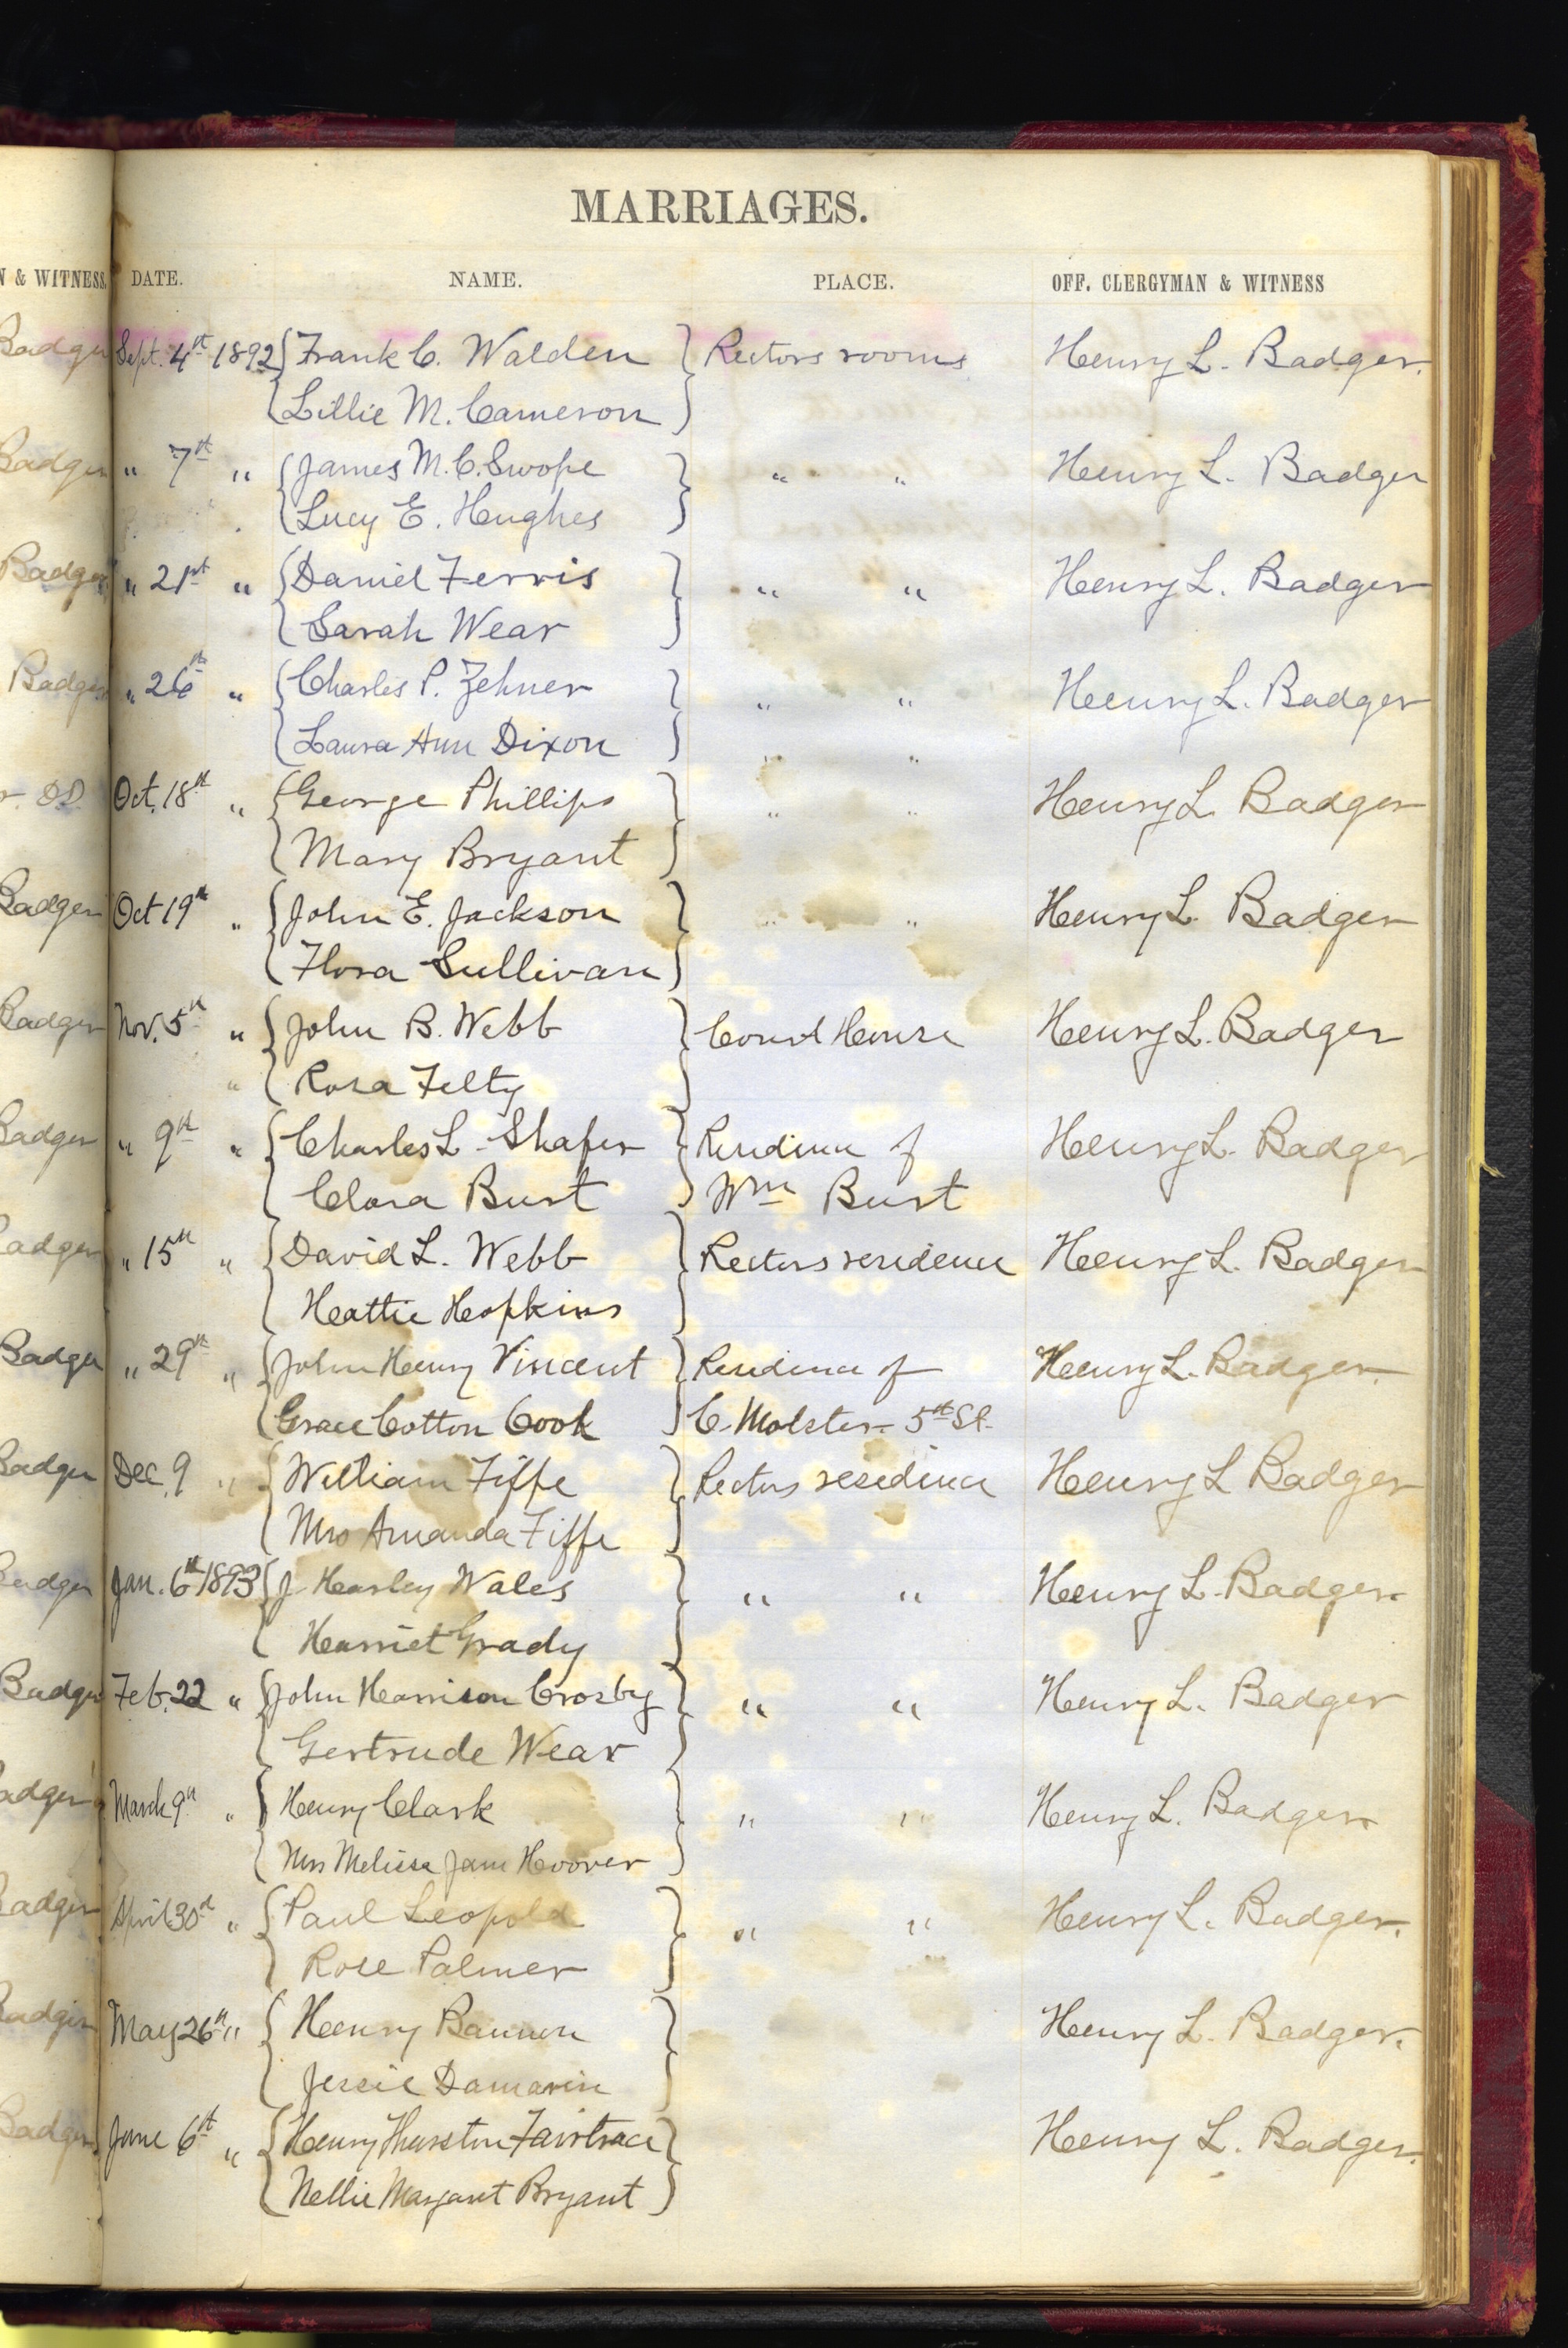 MARRIAGES.
N & WITNESS. DATE. NAME. PLACE. OFF. CLERGYMAN & WITNESS
Badger Sept. 4st 1892 { Frank C. Walden } Rectors rooms Henry L. Badger.
{ Lillie M. Cameron }
Badger " 7st " { James M. C. Swope } " " Henry L. Badger
{ Lucy E. Hughes }
Badger " 21st " { Daniel Ferris } " " Henry L. Badger
{ Sarah Wear }
Badger " 26th " { Charles P. Zehner } " " Henry L. Badger
{ Laura Ann Dixon } " "
D.D. Oct. 18st " { George Phillips } " " Henry L. Badger
{ Mary Bryant }
Badger Oct 19th " { John E. Jackson } " " Henry L. Badger
{ Flora Sullivan }
Badger Nov. 5th " { John B. Webb } Court House Henry L. Badger
" { Rosa Felty }
Badger " 9th " { Charles L. Shafer } Residence of Henry L. Badger
{ Clara Burt } Wm Burt
Badger " 15th " { David L. Webb } Rectors residence Henry L. Badger
{ Hattie Hopkins }
Badger " 29th " { John Henry Vincent } Residence of Henry L. Badger.
{ Grace Cotton Cook } C. Molster. 5th St.
Badger Dec. 9 " { William Fiffe } Rectors residence Henry L Badger
{ Mrs Amanda Fiffe }
Badger Jan. 6th 1893 { J. Harley Wales } " " Henry L. Badger.
{ Harriet Grady }
Badger Feb. 22 " { John Harrison Crosby } " " Henry L. Badger
{ Gertrude Wear }
Badger March 9th " { Henry Clark } " " Henry L. Badger.
{ Mrs Melissa Jane Hoover }
Badger April 30th " { Paul Leopold } " " Henry L. Badger.
{ Rose Palmer }
Badger May 26th " { Henry Bannon } Henry L. Badger.
{ Jessie Damarin }
Badger June 6st " { Henry Thurston Fairtrace } Henry L. Badger.
{ Nellie Margaret Bryant }